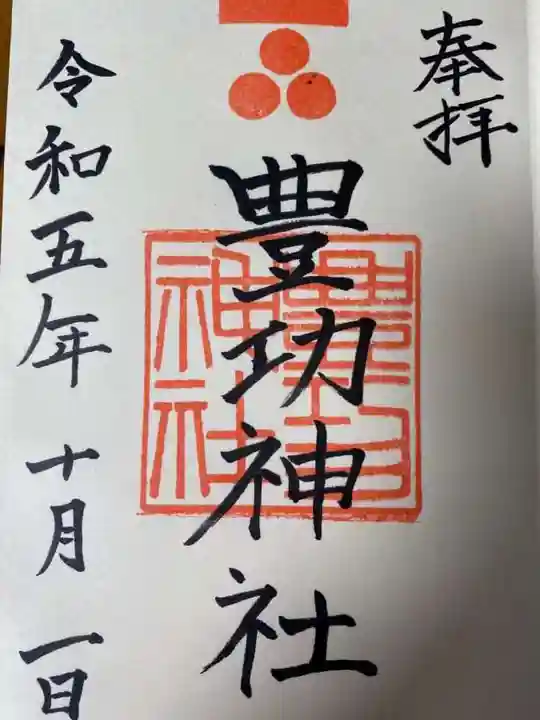 奉拝
豊功神社
豊功神社
令和五年十月一日